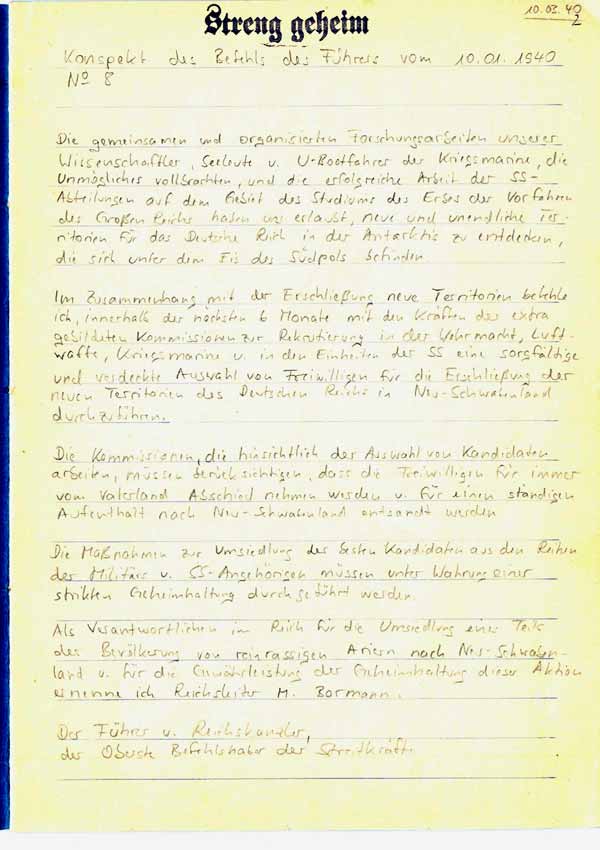 10.03.40
2
Streng geheim
Konspekt des Befehls des Führers vom 10.01.1940
Nº 8
Die gemeinsamen und organisierten Forschungsarbeiten unserer
Wissenschaftler, Seeleute u. U-Bootfahrer der Kriegsmarine, die
Unmögliches vollbrachten, und die erfolgreiche Arbeit der SS-
Abteilungen auf dem Gebiet des Studiums des Erbes der Vorfahren
des Großen Reichs haben uns erlaubt, neue und unendliche Ter-
ritorien für das Deutsche Reich in der Antarktis zu entdecken,
die sich unter dem Eis des Südpols befinden
Im Zusammenhang mit der Erschließung neue Territorien befehle
ich, innerhalb der nächsten 6 Monate mit den Kräften des extra
gebildeten Kommissionen zur Rekrutierung in der Wehrmacht, Luft-
waffe, Kriegsmarine u. in den Einheiten der SS eine sorgfältige
und verdeckte Auswahl von Freiwilligen für die Erschließung der
neuen Territorien des Deutschen Reichs in Neu-Schwabenland
durchzuführen.
Die Kommissionen, die hinsichtlich der Auswahl von Kandidaten
arbeiten, müssen berücksichtigen, dass die Freiwilligen für immer
vom Vaterland Abschied nehmen werden u. für einen ständigen
Aufenthalt nach Neu-Schwabenland entsandt werden
Die Maßnahmen zur Umsiedlung der besten Kandidaten aus den Reihen
der Militärs u. SS-Angehörigen müssen unter Wahrung einer
strikten Geheimhaltung durchgeführt werden.
Als Verantwortlichen im Reich für die Umsiedlung eines Teils
der Bevölkerung von reinrassigen Ariern nach Neu-Schwaben-
land u. für die Gewährleistung der Geheimhaltung dieser Aktion
ernenne ich Reichsleiter M. Bormann.
Der Führer u. Reichskanzler,
der Oberste Befehlshaber der Streitkräfte